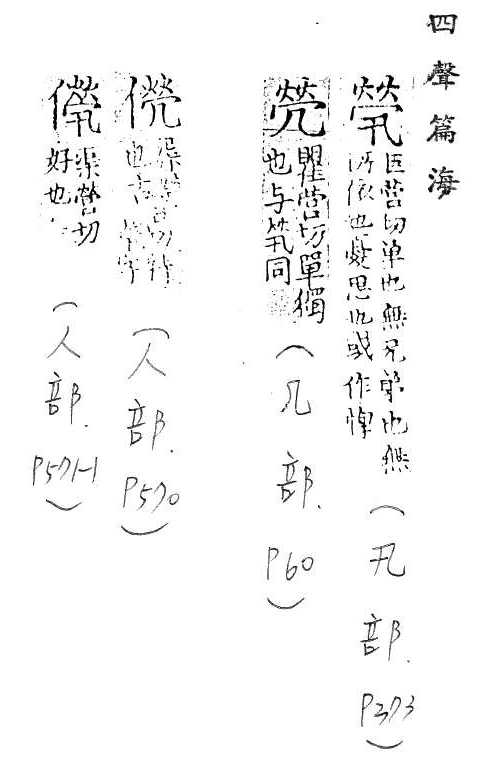 四聲篇海
煢
巨營切單也無兄弟也無
所依也憂思也或作惸
(卂部.P373)
焭
瞿營切單獨
也与煢同
(几部.P60)
㒌
(人部.P570)
僗
渠營切
好也
(人部.P571-1)